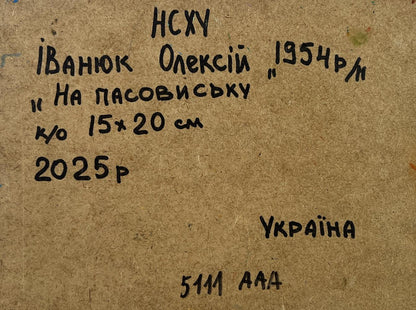 НСХУ
Іванюк Олексій „1954р/н
„ На пасовиську
к/о 15×20 см
2025р
Україна
5111 ААА